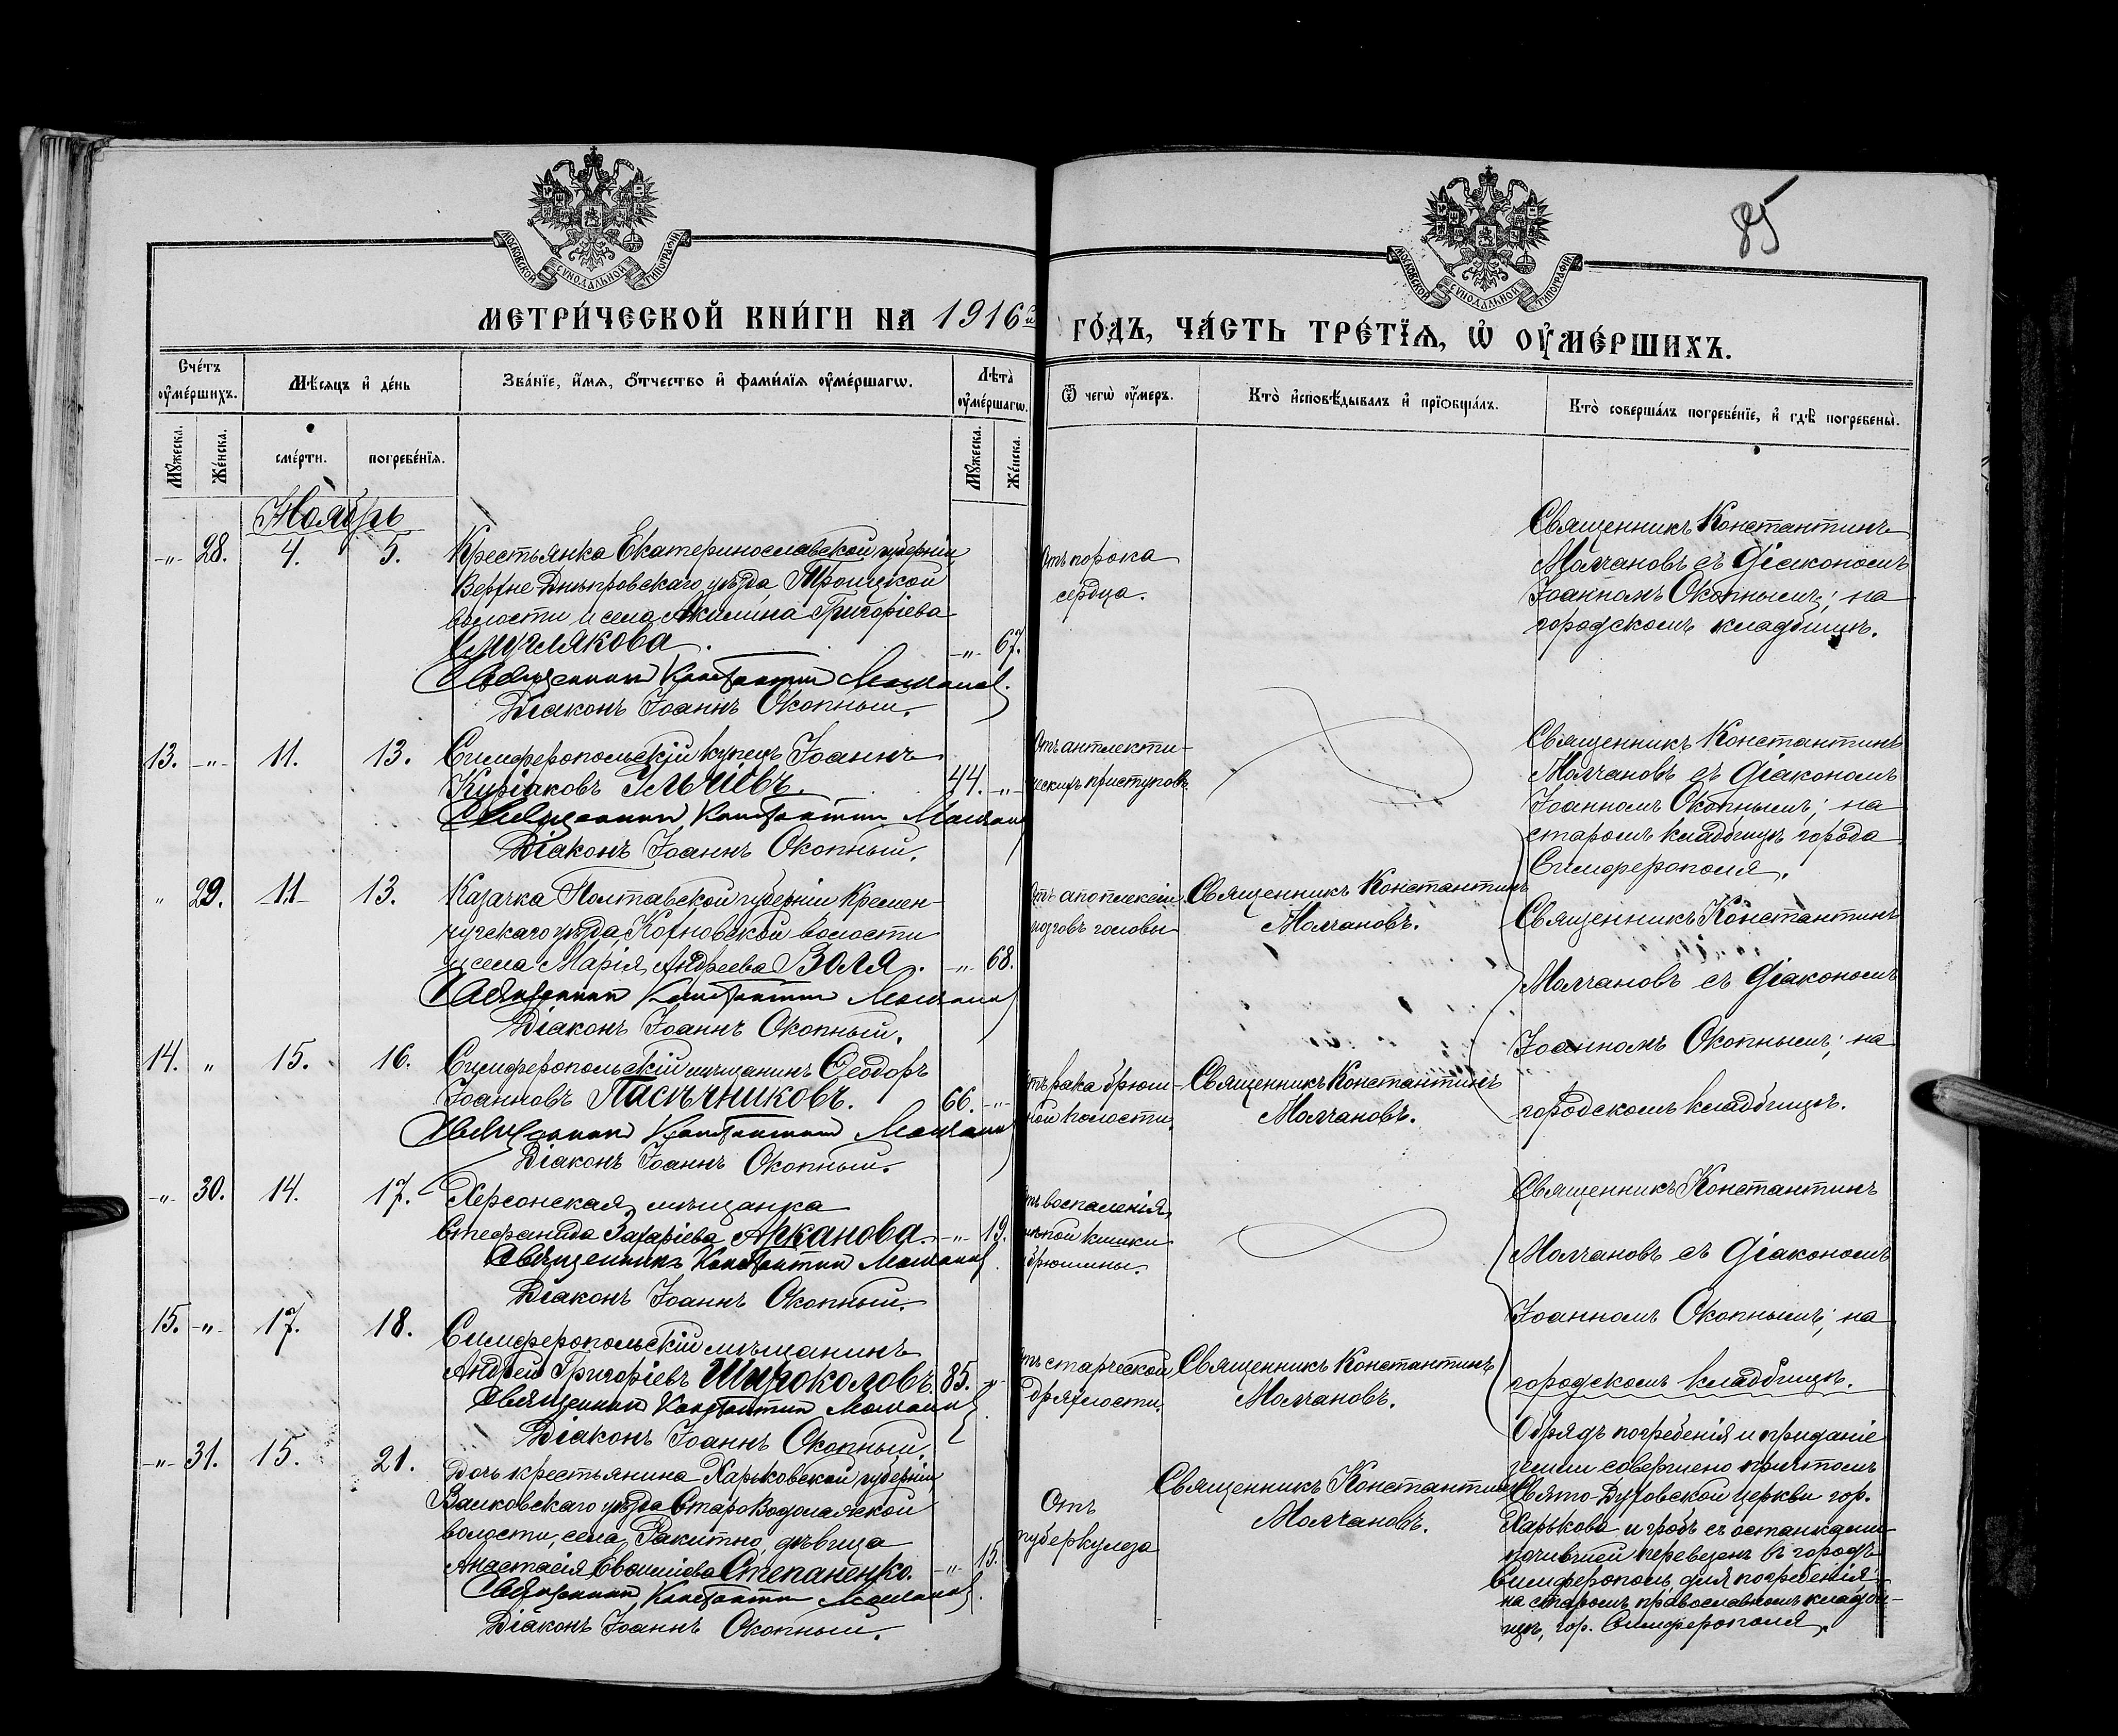 МОСКОВСКОЙ СѴНОДАЛЬНОЙ ТИПОГРАФІИ
МОСКОВСКОЙ СѴНОДАЛЬНОЙ ТИПОГРАФІИ
85
МЕТРИ́ЧЕСКОЙ КНИ́ГИ НА 1916й ГО́ДЪ, ЧА́СТЬ ТРЕ́ТЇѦ, Ѡ҆ ОУ҆МЕ́РШИХЪ.
Сче́тъ оу҆ме́ршихъ.
Мѣ́сяцъ и҆ де́нь
Зва́нїе, и҆́мѧ, ѻ҆́тчество и҆ фами́лїѧ оу҆ме́ршагѡ.
Лѣ́та оу҆ме́ршагѡ.
Ѿ чегѡ̀ оу҆́меръ.
Кто̀ и҆сповѣ́дывалъ и҆ прїѻбща́лъ.
Кто̀ соверша́лъ погребе́нїе, и҆ гдѣ̀ погребены̀.
Мꙋ́жеска.
Же́нска.
сме́рти.
погребе́нїѧ.
Мꙋ́жеска.
Же́нска.
Ноябрь
-"- 28. 4. 5. Крестьянка Екатеринославской губерніи
Верхне-Днѣпровскаго уѣзда, Троицкой
волости и села Акилина Григоріева
Смуглякова. -"- 67.
Священникъ Константинъ Молчановъ.
Діаконъ Іоаннъ Окопный.
Отъ порока
сердца.
Священникъ Константинъ
Молчановъ съ діакономъ
Іоанномъ Окопнымъ; на
городскомъ кладбищѣ.
13. -"- 11. 13. Симферопольскій купецъ Іоаннъ
Куріаковъ Ильчіевъ. 44. -"-
Священникъ Константинъ Молчановъ
Діаконъ Іоаннъ Окопный.
приступовъ.
Священникъ Константинъ
Молчановъ съ діакономъ
Іоанномъ Окопнымъ; на
старомъ кладбищѣ города
Симферополя.
" 29. 11. 13. Казачка Полтавской губерніи Кремен-
чугскаго уѣзда, Кохновской волости
и села Марія Андреева Золя. -"- 68.
Священникъ Константинъ Молчановъ
Діаконъ Іоаннъ Окопный.
Отъ апоплексіи
мозговъ головы
Священникъ Константинъ
Молчановъ.
Священникъ Константинъ
Молчановъ съ діакономъ
Іоанномъ Окопнымъ; на
городскомъ кладбищѣ.
14. " 15. 16. Симферопольскій мѣщанинъ Ѳеодоръ
Іоанновъ Пасѣчниковъ. 66. -"-
Священникъ Константинъ Молчановъ
Діаконъ Іоаннъ Окопный.
Отъ рака брюш-
ной полости.
Священникъ Константинъ
Молчановъ.
-"- 30. 14. 17. Херсонская мѣщанка
Стефанида Захаріева Арканова. -"- 19.
Священникъ Константинъ Молчановъ.
Діаконъ Іоаннъ Окопный.
воспаленія
кишки
брюшины.
Священникъ Константинъ
Молчановъ съ діакономъ
Іоанномъ Окопнымъ; на
городскомъ кладбищѣ.
15. -"- 17. 18. Симферопольскій мѣщанинъ
Андрей Григоріевъ Широколовъ. 85. -"-
Священникъ Константинъ Молчановъ
Діаконъ Іоаннъ Окопный.
Отъ старческой
дряхлости.
Священникъ Константинъ
Молчановъ.
-"- 31. 15. 21. Дочь крестьянина Харьковской губерніи
Валковскаго уѣзда Староводолажской
волости, села Ракитно, дѣвица
Анастасія Степаненко. -"- 15.
Священникъ Константинъ Молчановъ.
Діаконъ Іоаннъ Окопный.
Отъ
туберкулеза
Священникъ Константинъ
Молчановъ.
Обрядъ погребенія и приданіе
земли совершено причтомъ
Свято-Духовской церкви гор.
Харькова и гробъ съ останками
почившей перевезенъ въ городъ
Симферополь для погребенія
на старомъ православномъ кладби-
щѣ, гор. Симферополя.